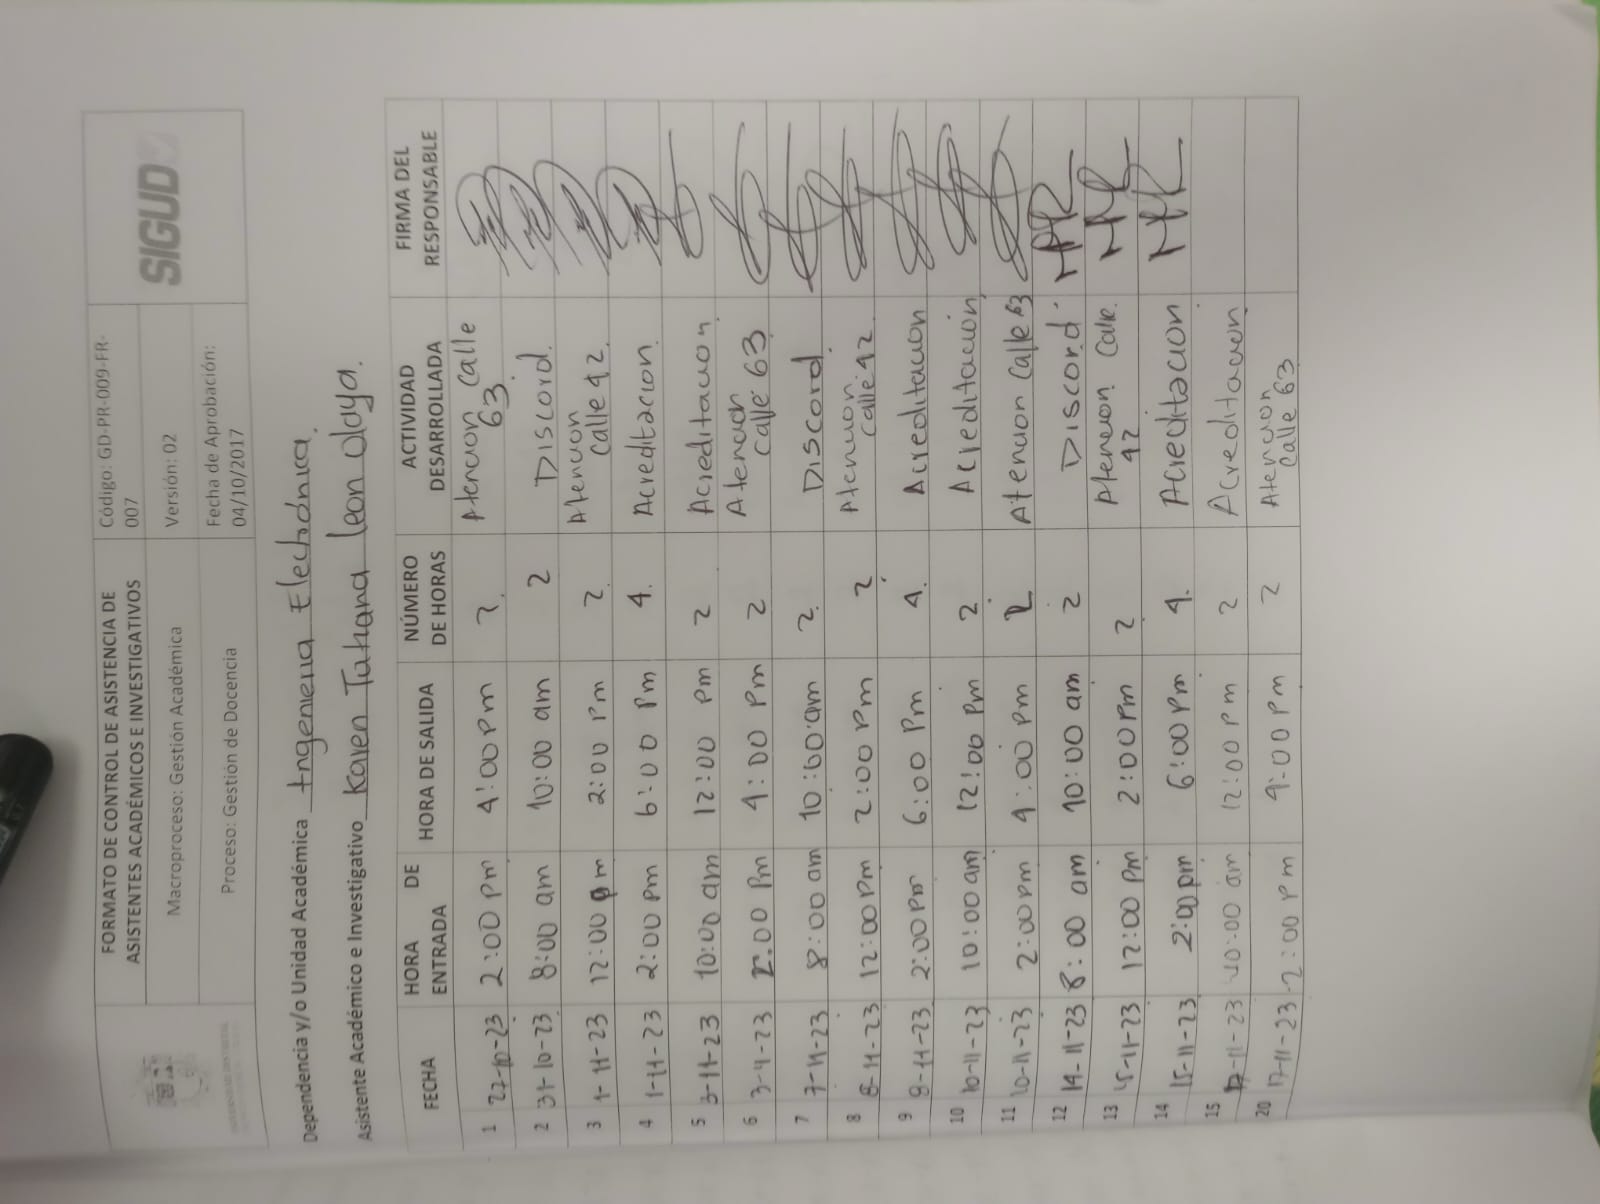 FORMATO DE CONTROL DE ASISTENCIA DE
ASISTENTES ACADÉMICOS E INVESTIGATIVOS
Macroproceso: Gestión Académica
Proceso: Gestión de Docencia
Código: GD-PR-009-FR-
007
Versión: 02
Fecha de Aprobación:
04/10/2017
SIGUD
Dependencia y/o Unidad Académica Ingenieria Electrónica.
Asistente Académico e Investigativo Karen Tatiana leon olaya.
FECHA HORA DE ENTRADA HORA DE SALIDA NÚMERO DE HORAS ACTIVIDAD DESARROLLADA FIRMA DEL RESPONSABLE
1 27-10-23 2:00 pm 4:00 pm 2. Atencion Calle 63
2 31-10-23 8:00 am 10:00 am 2 Discord.
3 1-11-23 12:00 pm 2:00 Pm 2. Atencion Calle 42.
4 1-11-23 2:00 pm 6:00 Pm 4. Acreditacion.
5 3-11-23 10:00 am 12:00 Pm 2 Acreditacion.
6 3-11-23 2:00 Pm 4:00 Pm 2 Atencion calle 63
7 7-11-23 8:00 am 10:00 am 2. Discord.
8 8-11-23 12:00 Pm 2:00 Pm 2 Atencion calle 42.
9 8-11-23 2:00 Pm 6:00 Pm 4. Acreditacion
10 10-11-23 10:00 am 12:00 Pm 2 Acreditacion,
11 10-11-23 2:00 pm 4:00 Pm 2 Atencion Calle 63
12 14-11-23 8:00 am 10:00 am 2 Discord.
13 15-11-23 12:00 Pm 2:00 Pm 2 Atencion Calle. 42
14 15-11-23 2:00 pm 6:00 Pm 4. Acreditacion
15 17-11-23 10:00 am 12:00 Pm 2 Acreditacion
20 17-11-23 2:00 Pm 4:00 Pm 2 Atencion Calle 63